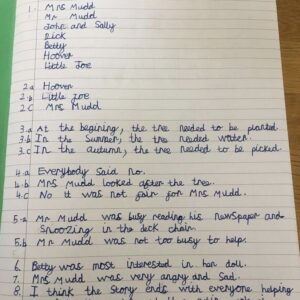 1. Mrs Mudd
Mr Mudd
John and Sally
Dick
Betty
Hoover
Little Joe
2a Hoover
2.b Little Joe
2 c Mrs Mudd
3.a At the begining, the tree needed to be planted.
3.b In the Summer, the tree needed water.
3.c In the autumn, the tree needed to be picked.
4.a Everybody Said no.
4.b Mrs Mudd looked after the tree.
4.c No it was not fair for Mrs Mudd.
5.a Mr Mudd was busy reading his newspaper and
Snoozing in the deck chair.
5.b Mr Mudd was not too busy to help.
6. Betty was most interested in her doll.
7. Mrs Mudd was very angry and Sad.
8. I think the Story ends with everyone helping